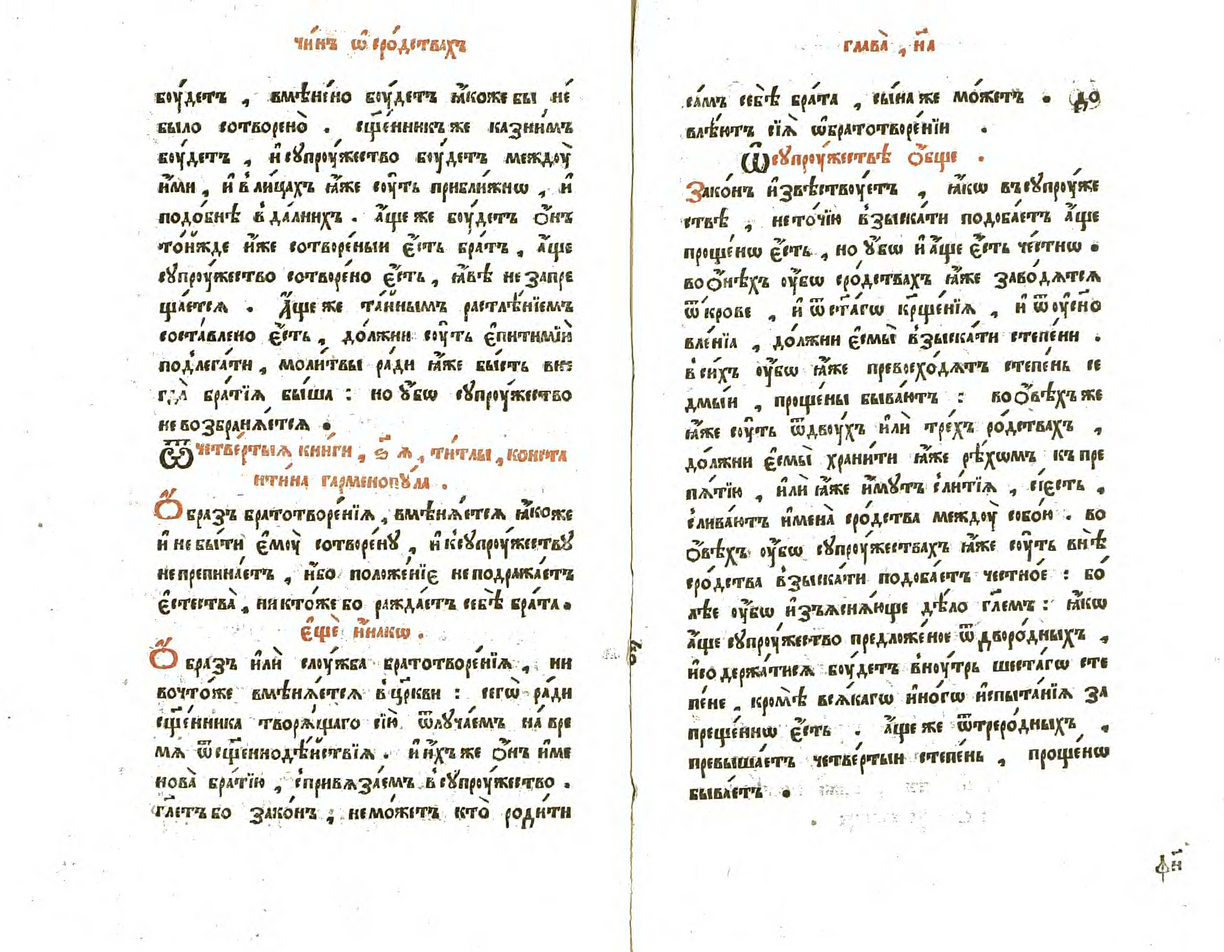 чи́нъ ѡ҆ сро́дствахъ
боу́детъ , вмѣне́но боу́детъ ꙗ҆́коже бы не́
было сотворено̀ . сщ҃е́нникъ же казни́мъ
боу́детъ , и҆ супроу́жество боу́детъ междоу̀
и҆́ми , и҆ в̾ ли́цахъ ꙗ҆́же соу́ть прибли́жнѡ , и҆
подо́бнѣ в̾ да́лнихъ . а҆́ще же боу́детъ о҆́нъ
то́йжде и҆́же сотворе́ныи є҆́сть бра́тъ , а҆́ще
супроу́жество сотворено̀ є҆́сть , ꙗ҆́вѣ не запре
ща́ется . А҆́ще же та́йнымъ растлѣ́нїемъ
соста́влено є҆́сть , до́лжни соу́ть є҆питимїѝ
подлега́ти , моли́твы ра́ди ꙗ҆́же бы́сть вне
гда̀ бра́тїѧ бы́ша : но у҆́бѡ супроу́жество
не возбранѧ́ется .
Ѿ четве́ртыѧ кни́ги , ѕ҃ ѧ , ти́тлы , конста
нти́на гармено́пꙋла .
О҆́бразъ братотворе́нїѧ , вмѣнѧ́ется ꙗ҆́коже
и҆ не бы́ти є҆моу̀ сотворе́ну , и҆ к̾ супроу́жеству
не препина́етъ , и҆́бо положе́нїе не подража́етъ
є҆стества̀ , никто́же бо ражда́етъ себѣ̀ бра́та .
є҆щѐ и҆́накѡ .
О҆́бразъ и҆лѝ слоу́жба братотворе́нїѧ , ни
во что́же вмѣнѧ́ется в̾ цр҃кви : сегѡ̀ ра́ди
сщ҃е́нника творѧ́щаго сїю̀ ѿлуча́емъ на́ вре
мѧ ѿ сщ҃еннодѣ́йствїѧ . и҆ и҆́хъ же о҆́нъ и҆ме
нова̀ бра́тїю , спривѧза́емъ в̾ супроу́жество .
гл҃етъ бо зако́нъ , не мо́жетъ кто̀ роди́ти
глава̀ , н҃а
са́мъ себѣ̀ бра́та , сы́на же мо́жетъ . до
влѣ́ютъ сїѧ̀ ѡ҆ братотворе́нїи .
Ѡ҆ супроу́жествѣ о҆́бще .
Зако́нъ и҆звѣ́ствоуетъ , ꙗ҆́кѡ въ супроу́же
ствѣ , не то́чїю взыска́ти подоба́етъ а҆́ще
проще́нѡ є҆́сть , но у҆́бѡ и҆ а҆́ще є҆́сть че́стнѡ .
во о҆́нѣхъ оу҆́бѡ сро́дствахъ ꙗ҆́же заво́дѧтсѧ
ѿ кро́ве , и҆ ѿ ст҃а́гѡ крщ҃е́нїѧ , и҆ ѿ оу҆сно
вле́нїа , до́лжни є҆смы̀ взыска́ти сте́пени .
в̾ си́хъ оу҆́бѡ ꙗ҆́же превосхо́дѧтъ сте́пень се
дмы́и , проще́ны быва́ютъ : во о҆́вѣхъ же
ꙗ҆́же соу́ть ѿ двоу́хъ и҆лѝ тре́хъ ро́дствахъ ,
до́лжни є҆смы̀ храни́ти ꙗ҆́же рѣ́хомъ къ пре
пѧ́тїю , и҆лѝ ꙗ҆́же и҆́мутъ слитїѧ , сїе́сть ,
слива́ютъ и҆мена̀ сро́дства междоу̀ собо́ю . во
о҆́вѣхъ оу҆́бѡ супроу́жествахъ ꙗ҆́же соу́ть внѣ̀
сро́дства взыска́ти подоба́етъ честно́е : бо́
лѣе оу҆́бѡ и҆зъѧснѧ́юще дѣ́ло гл҃емъ : ꙗ҆́кѡ
а҆́ще супроу́жество предложе́ное ѿ дворо́дныхъ ,
и҆ содержа́тисѧ боу́детъ вноу́трь шеста́гѡ сте
пене , кромѣ̀ всѧ́кагѡ и҆но́гѡ и҆спыта́нїѧ за
преще́ннѡ є҆́сть . а҆́ще же ѿ треро́дныхъ ,
превыша́етъ четве́ртыи сте́пень , проще́нѡ
быва́етъ .
фн҃